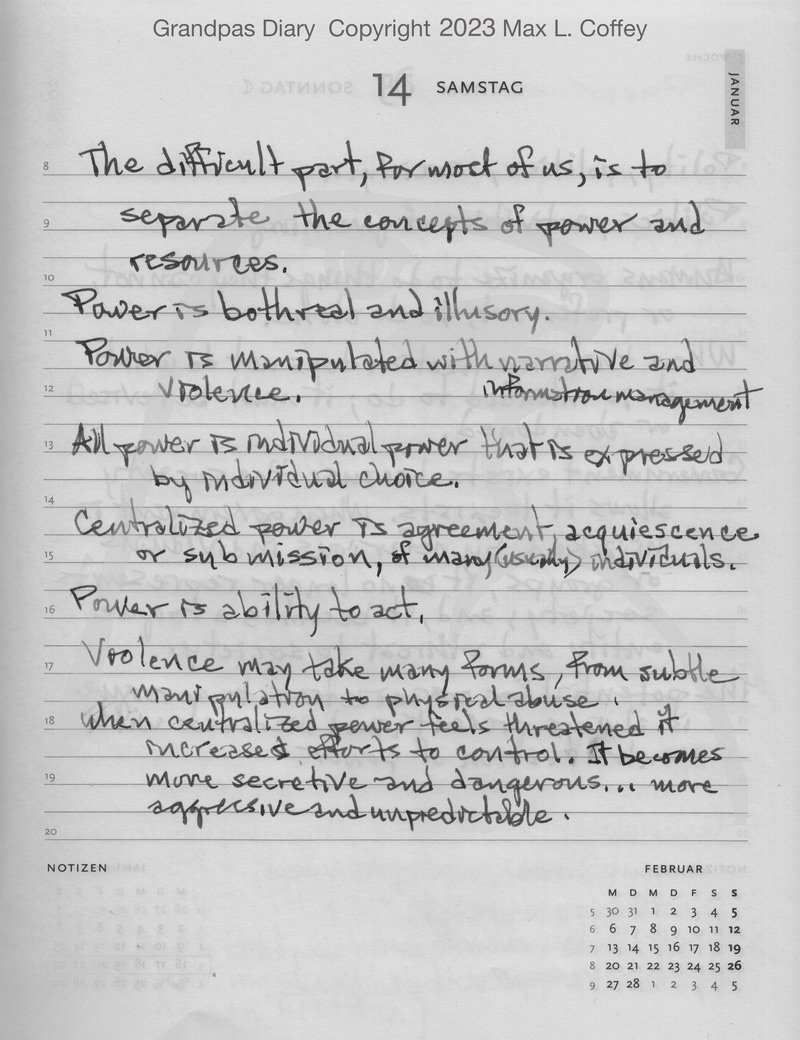 Grandpas Diary Copyright 2023 Max L. Coffey
14 SAMSTAG
JANUAR
8 The difficult part, for most of us, is to
9 separate the concepts of power and
resources.
10
Power is both real and illusory.
11
Power is manipulated with narrative and
12 violence. information management
13 All power is individual power that is expressed
by individual choice.
14
Centralized power is agreement, acquiescence
15 or submission, of many (usually) individuals.
16 Power is ability to act.
17 Violence may take many forms, from subtle
manipulation to physical abuse.
18 When centralized power feels threatened it
increases efforts to control. It becomes
19 more secretive and dangerous... more
aggressive and unpredictable.
20
NOTIZEN
FEBRUAR
M D M D F S S
5 30 31 1 2 3 4 5
6 6 7 8 9 10 11 12
7 13 14 15 16 17 18 19
8 20 21 22 23 24 25 26
9 27 28 1 2 3 4 5